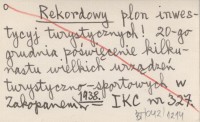 Rekordowy plon inwes-
tycyj turystycznych! 20-go
grudnia poświęcenie kilku-
nastu wielkich urządzeń
turystyczno-sportowych w
Zakopanem 1938. IKC nr 327.